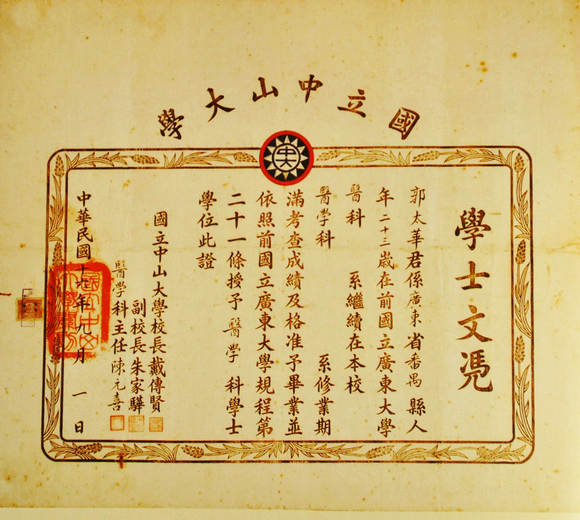 國立中山大學
學士文憑
郭太華君係廣東省番禺縣人
年二十三歲在前國立廣東大學
醫科 系繼續在本校
醫學科 系修業期
滿考查成績及格准予畢業並
依照前國立廣東大學規程第
二十一條授予醫學科學士
學位此證
國立中山大學校長戴傳賢
副校長朱家驊
醫學科主任陳元喜
中華民國十七年九月一日